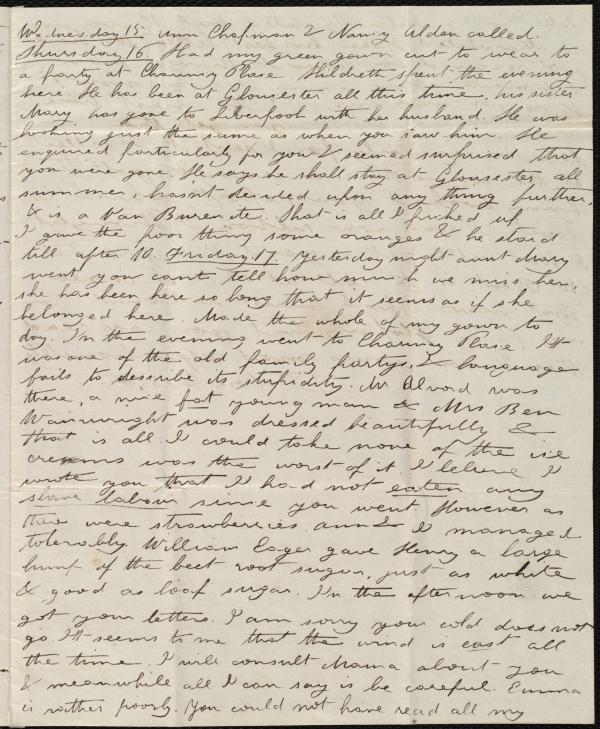 Wednesday 15 Ann Chapman & Nancy Alden called.
Thursday 16 Had my green gown cut to wear to
a party at Chauncy Place Hildreth spent the evening
here. He has been at Gloucester all this time, his sister
Mary has gone to Liverpool with her husband. He was
looking just the same as when you saw him. He
enquired particularly for you & seemed surprised that
you were gone. He says he shall stay at Gloucester all
summer, hasn't decided upon any thing further,
& is a Van Burenite. That is all I picked up
I gave the poor thing some oranges & he staid
till after 10. Friday 17. Yesterday night aunt Mary
went you cant tell how much we miss her,
she has been here so long that it seems as if she
belonged here. Made the whole of my gown to
day. In the evening went to Chauncy Place. It
was one of the old family partys, & language
fails to describe its stupidity. Mr Alvord was
there, a nice fat young man & Mrs Ben
Wainwright was dressed beautifully &
that is all. I could take none of the ice
creams was the worst of it. I believe I
wrote you that I had not eaten any
slave labour since you went. However as
there were strawberries Ann & I managed
tolerably. William Eager gave Henry a large
lump of the beet root sugar, just as white
& good as loaf sugar. In the afternoon we
got your letters. I am sorry your cold does not
go. It seems to me that the wind is east all
the time. I will consult Mama about you
& meanwhile all I can say is be careful. Emma
is rather poorly. You could not have read all my